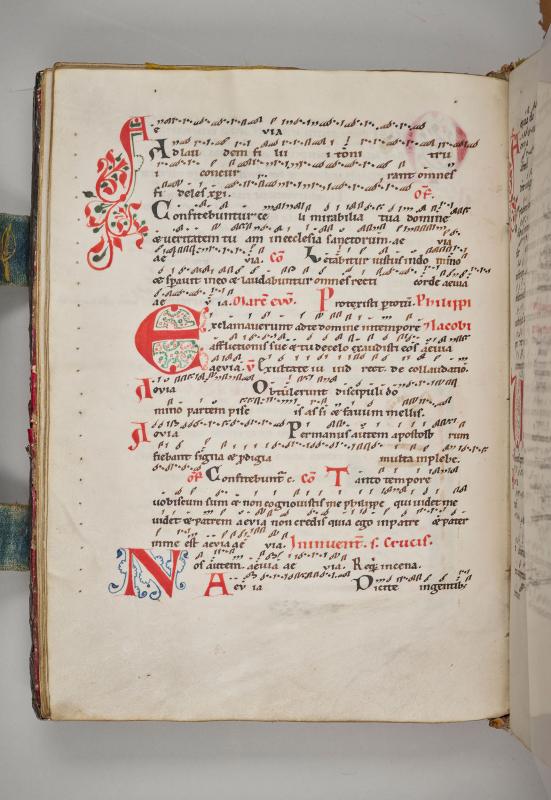 A
e via
Ad lau dem fi lii i roni tru
i conciu r. rant omnes
fi deles xpi. Off.
Confitebuntur ce li mirabilia tua domine
& ueritatem tu am in ecclesia sanctorum. ae via
ae via. Co Letabitur iustus in do mino
& spauit in eo & laudabuntur omnes recti corde aevia
ae v ia. Philippi
Exclamauerunt ad te domine in tempore Iacobi
afflictionis sue & tu de celo exaudisti eos aevia
aevia. V Exultate iu iusti rect. de collaudatio.
Aevia Obtulerunt discipuli do
mino partem pisc is assi & fauum mellis.
Alevia Per manus autem apostolo rum
fiebant signa & pdigia multa in plebe.
Off Confitebunt c. Co Tanto tempore
uobiscum sum & non cognouistis me philippe qui uidet me
uidet & patrem aevia non credis quia ego in patre & pater
in me est aevia ae via. In inuent. s. Crucis.
Nos autem. aevia ae via. Req. in cena.
Aev ia Dicite in gentib;